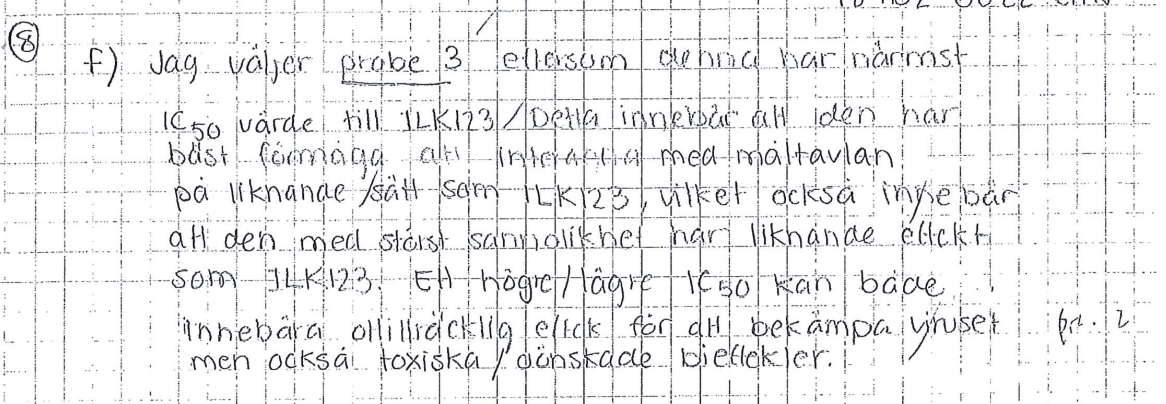 ⑧
f) Jag väljer probe 3 eftersom denna har närmst
IC50 värde till JLK123 / Detta innebär att iden har
bäst förmåga att interagera med måltavlan
på liknande sätt som JLK123, vilket också innebär
att den med störst sannolikhet har liknande effekt
som JLK123. Ett högre/lägre IC50 kan både
innebära otillräcklig effek för att bekämpa yruset
men också toxiska / oönskade bieffekter.